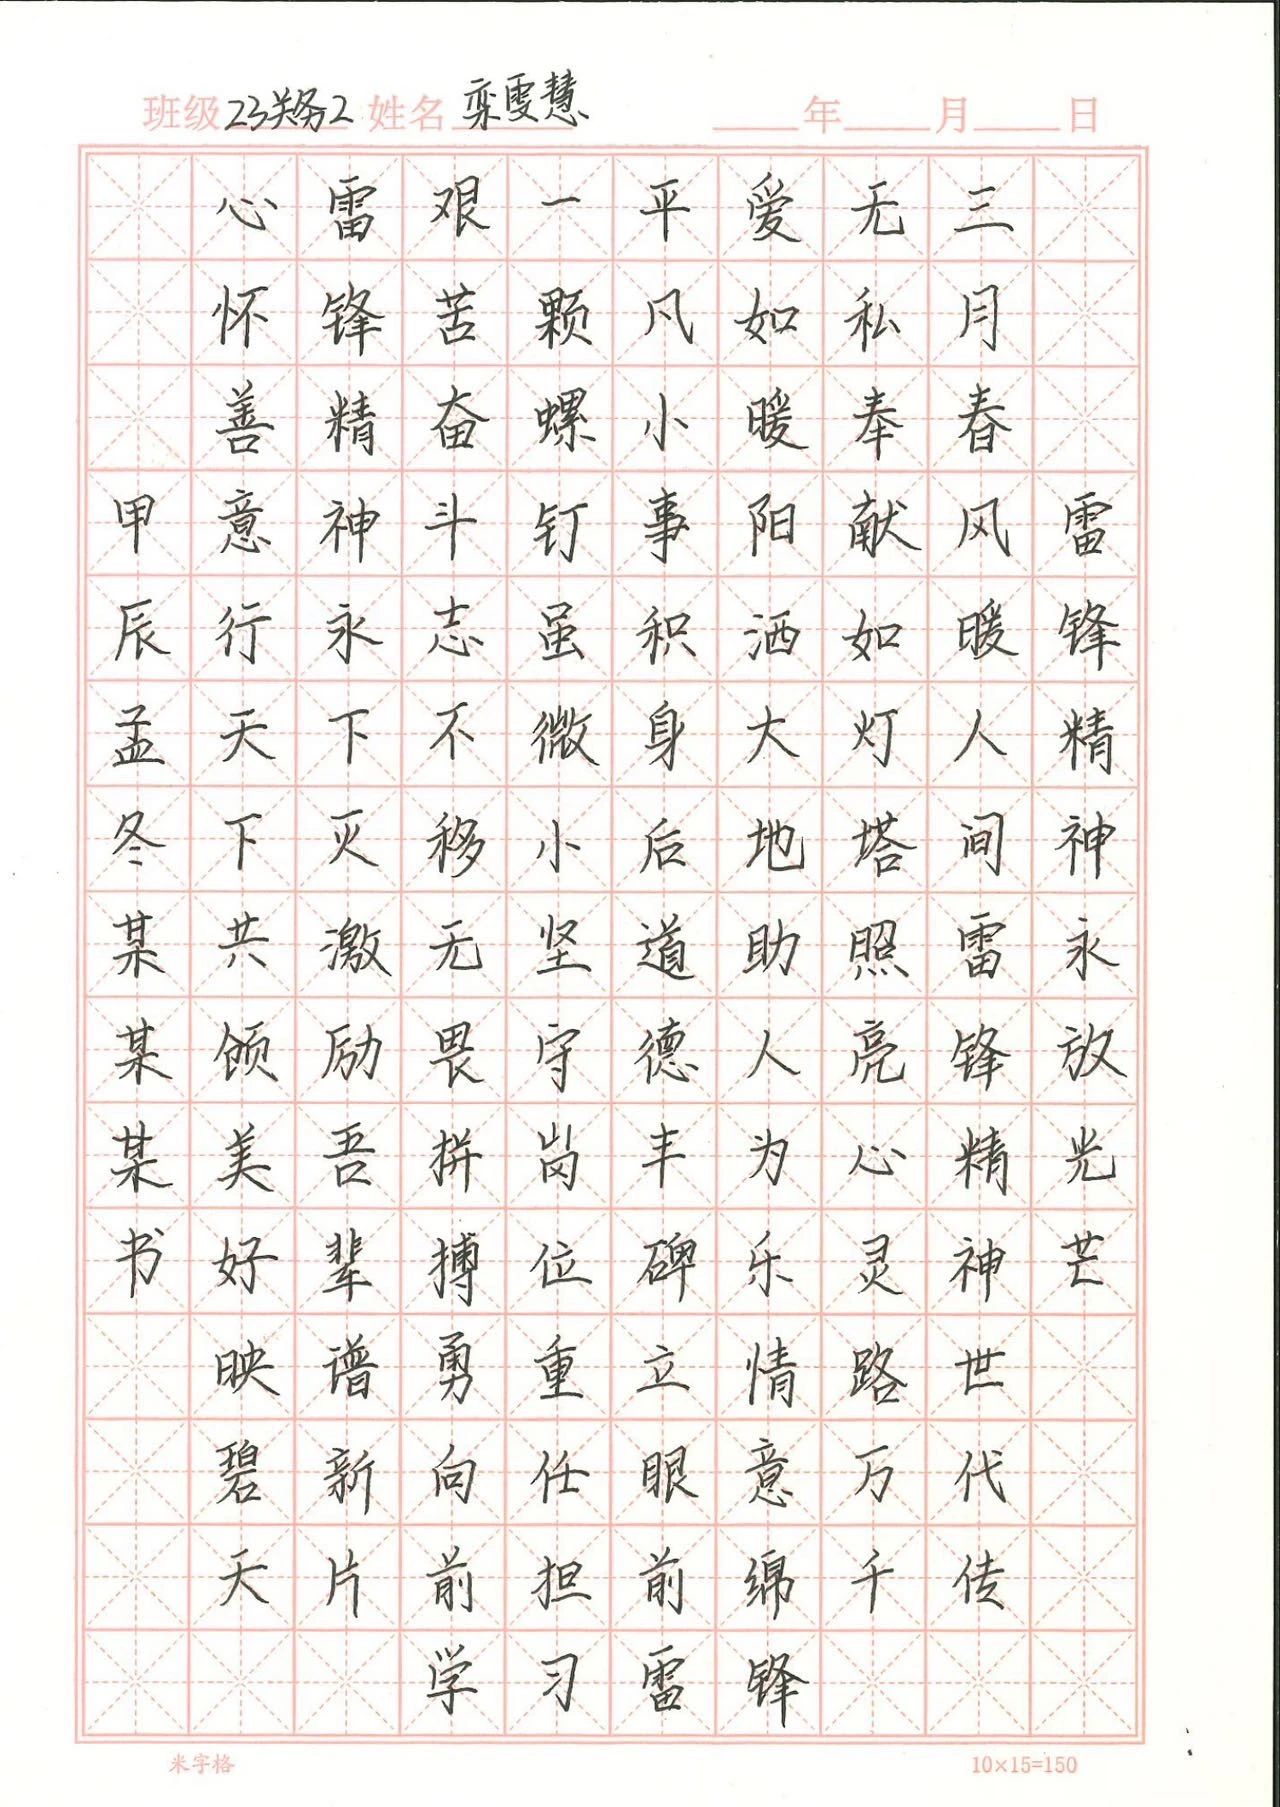 班级 23关务2 姓名 栾雯慧 年 月 日
雷锋精神永放光芒
三月春风暖人间雷锋精神世代传
无私奉献如灯塔照亮心灵路万千
爱如暖阳洒大地助人为乐情意绵
平凡小事积身后道德丰碑立眼前
一颗螺钉虽微小坚守岗位重任担
艰苦奋斗志不移无畏拼搏勇向前
雷锋精神永下灭激励吾辈谱新片
心怀善意行天下共倾美好映碧天
甲辰孟冬某某某书
学习雷锋
米字格 10×15=150